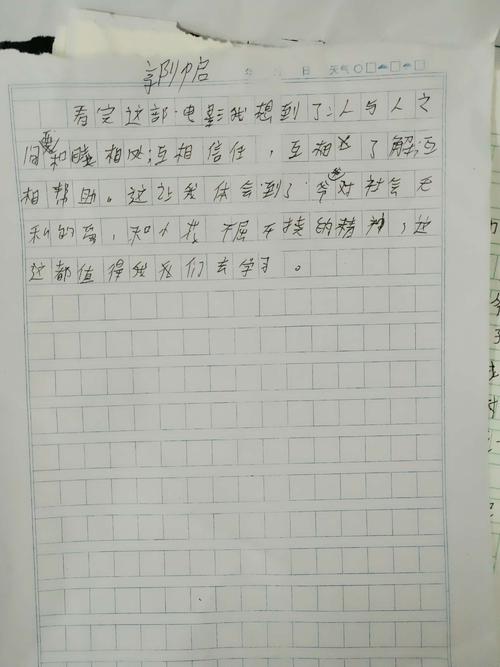 郭帅启
年 月 日 天气
看完这部电影我想到了:人与人之
间要和睦相处;互相信任,互相了解;互
相帮助。这让我体会到了爷爷对社会无
私的爱,和小孩不屈不挠的精神,这
这都值得我我们去学习。